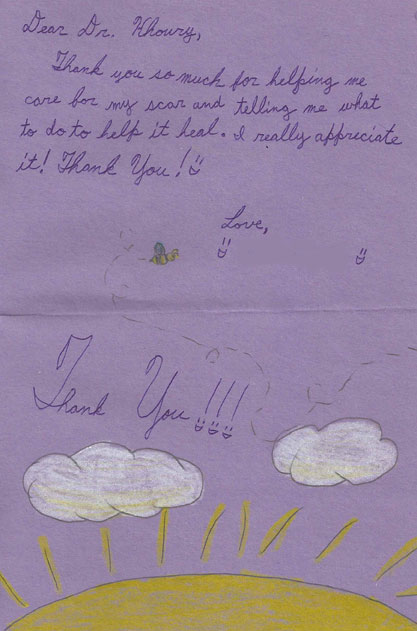 Dear Dr. Khoury,
Thank you so much for helping me
care for my scar and telling me what
to do to help it heal. I really appreciate
it! Thank You!
Love,
Thank You!!!